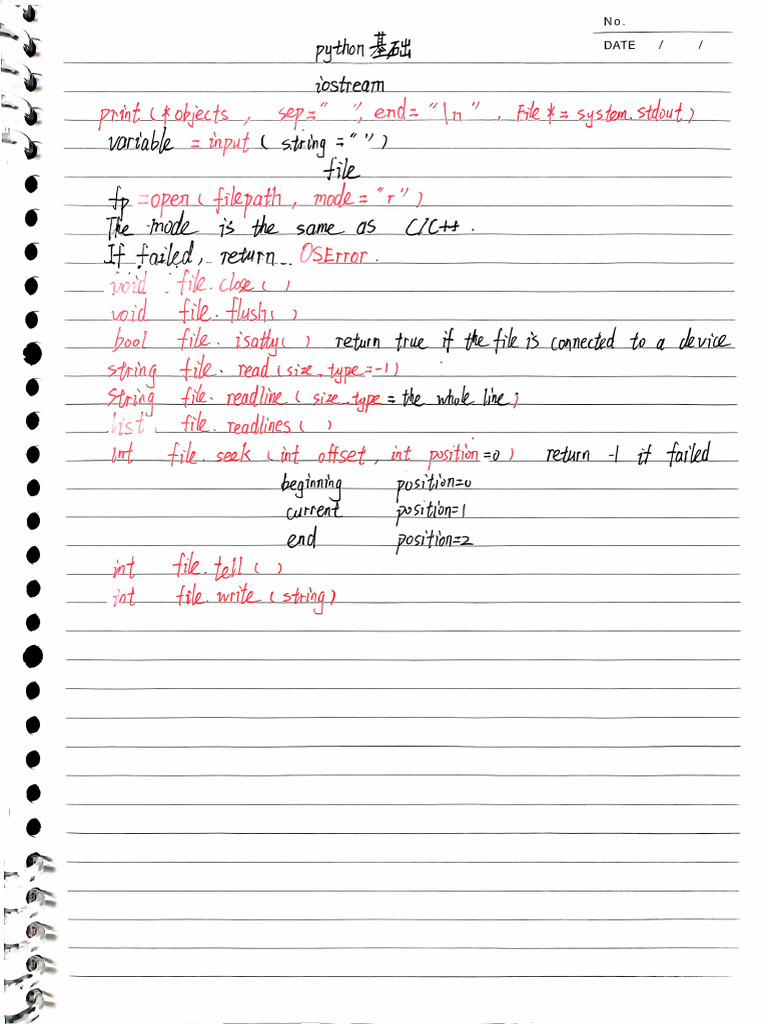 No.
DATE / /
python 基础
iostream
print (*objects , sep=" ", end= "\n" , File *= system.stdout)
variable = input ( string = "")
file
fp =open ( filepath , mode = "r" )
The mode is the same as C/C++ .
If failed, return OSError .
void file. close ( )
void file. flush( )
bool file. isatty( ) return true if the file is connected to a device
string file. read (size_type=-1)
String file. readline ( size_type = the whole line)
list file. readlines ( )
int file. seek (int offset, int position=0 ) return -1 if failed
beginning position=0
current position=1
end position=2
int file. tell ( )
int file. write (string)